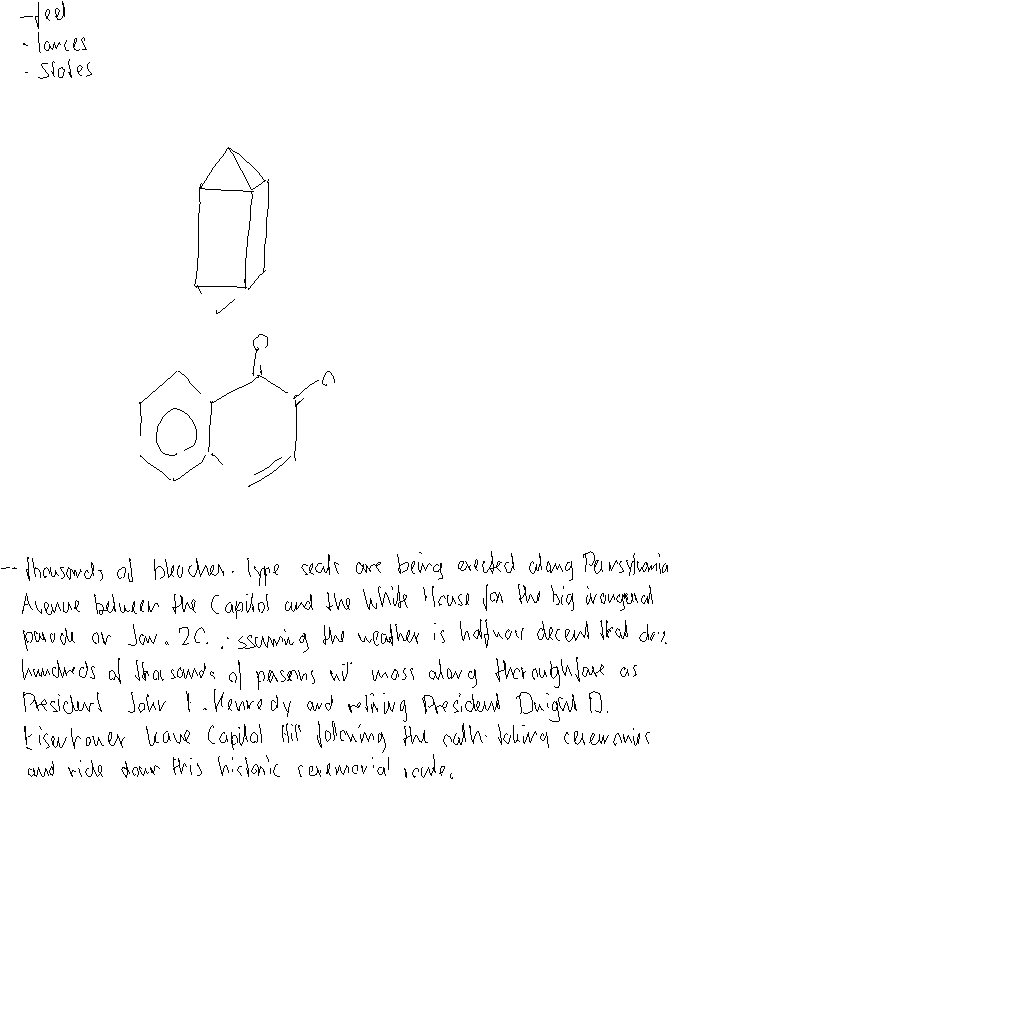 - feet
· lances
· States
O
- thousands of bleacher-type seats are being erected along Pennsylvania
Avenue between the Capitol and the White House for the big inaugural
parade on Jan. 20. Assuming the weather is halfway decent that day,
hundreds of thousands of persons will mass along thoroughfare as
President John F. Kennedy and retiring President Dwight D.
Eisenhower leave Capitol Hill following the oath-taking ceremonies
and ride down this historic ceremonial route.